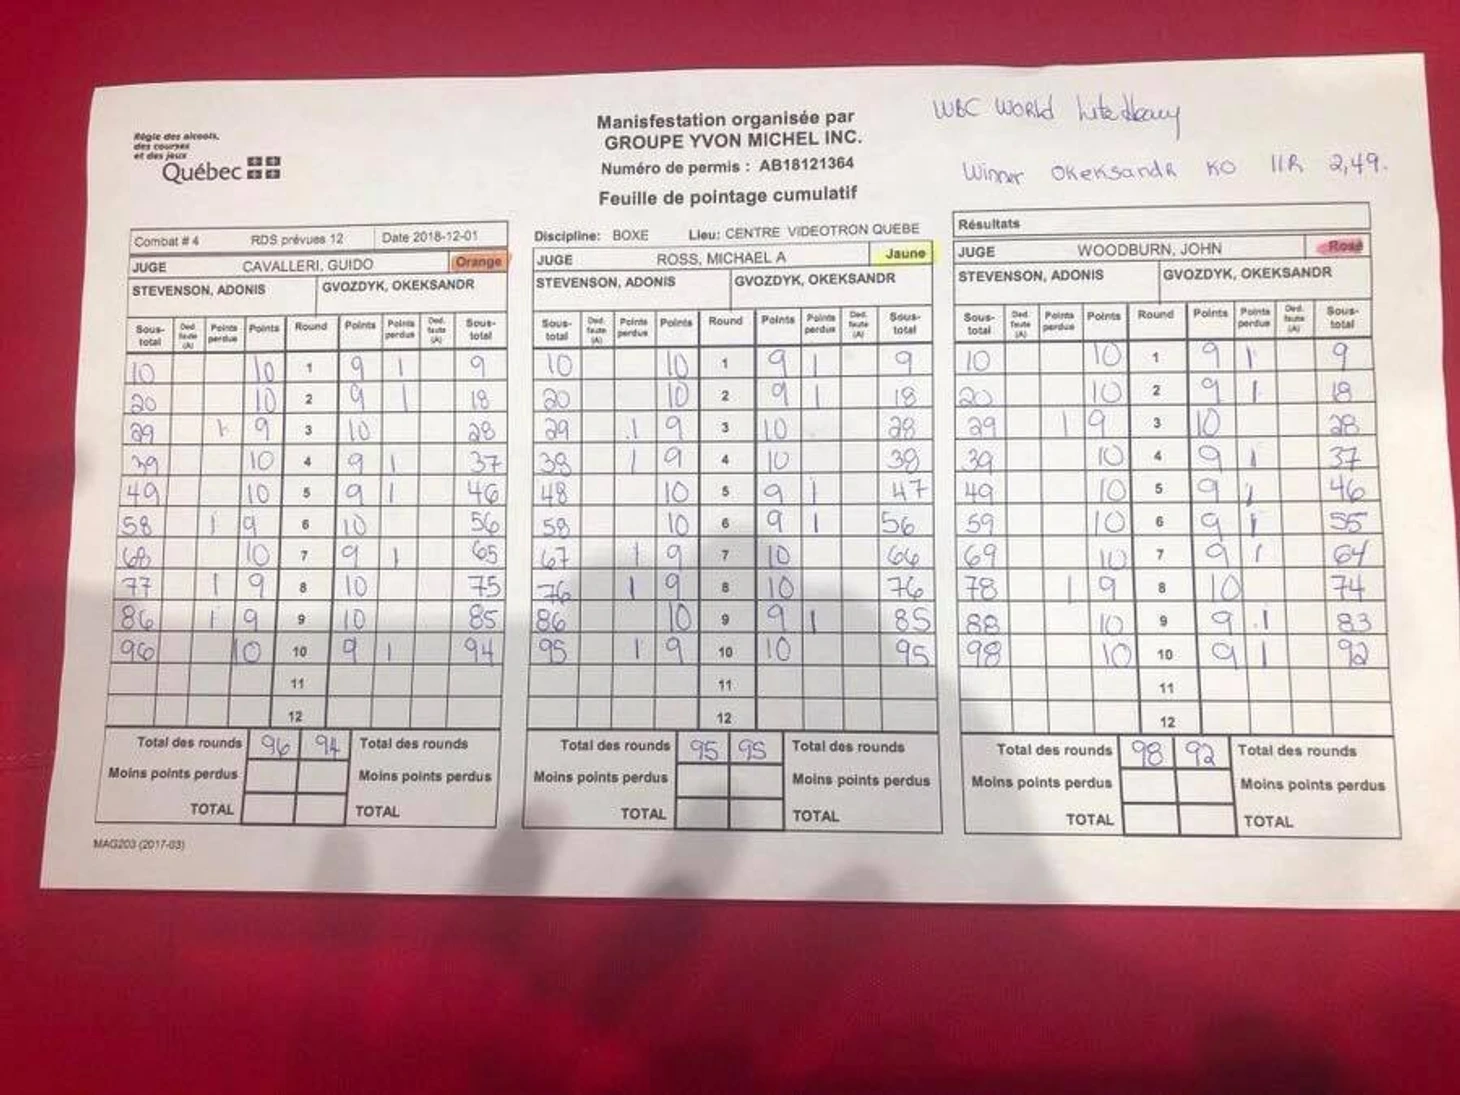 Régie des alcools,
des courses
et des jeux
Québec
Manisfestation organisée par
GROUPE YVON MICHEL INC.
Numéro de permis : AB18121364
Feuille de pointage cumulatif
WBC WORLD
Winner Okeksandr KO 11R 2,49.
Combat # 4 RDS prévues 12 Date 2018-12-01
JUGE CAVALLERI, GUIDO Orange
STEVENSON, ADONIS GVOZDYK, OKEKSANDR
Sous-total Ded. faute (A) Points perdus Points Round Points Points perdus Ded. faute (A) Sous-total
10 10 1 9 1 9
20 10 2 9 1 18
29 1 9 3 10 28
39 10 4 9 1 37
49 10 5 9 1 46
58 1 9 6 10 56
68 10 7 9 1 65
77 1 9 8 10 75
86 1 9 9 10 85
96 10 10 9 1 94
11
12
Total des rounds 96 94 Total des rounds
Moins points perdus Moins points perdus
TOTAL TOTAL
MAG203 (2017-03)
Discipline: BOXE Lieu: CENTRE VIDEOTRON QUEBE
JUGE ROSS, MICHAEL A Jaune
STEVENSON, ADONIS GVOZDYK, OKEKSANDR
Sous-total Ded. faute (A) Points perdus Points Round Points Points perdus Ded. faute (A) Sous-total
10 10 1 9 1 9
20 10 2 9 1 18
29 1 9 3 10 28
38 1 9 4 10 38
48 10 5 9 1 47
58 10 6 9 1 56
67 1 9 7 10 66
76 1 9 8 10 76
86 10 9 9 1 85
95 1 9 10 10 95
11
12
Total des rounds 95 95 Total des rounds
Moins points perdus Moins points perdus
TOTAL TOTAL
Résultats
JUGE WOODBURN, JOHN Rose
STEVENSON, ADONIS GVOZDYK, OKEKSANDR
Sous-total Ded. faute (A) Points perdus Points Round Points Points perdus Ded. faute (A) Sous-total
10 10 1 9 1 9
20 10 2 9 1 18
29 1 9 3 10 28
39 10 4 9 1 37
49 10 5 9 1 46
59 10 6 9 1 55
69 10 7 9 1 64
78 1 9 8 10 74
88 10 9 9 1 83
98 10 10 9 1 92
11
12
Total des rounds 98 92 Total des rounds
Moins points perdus Moins points perdus
TOTAL TOTAL